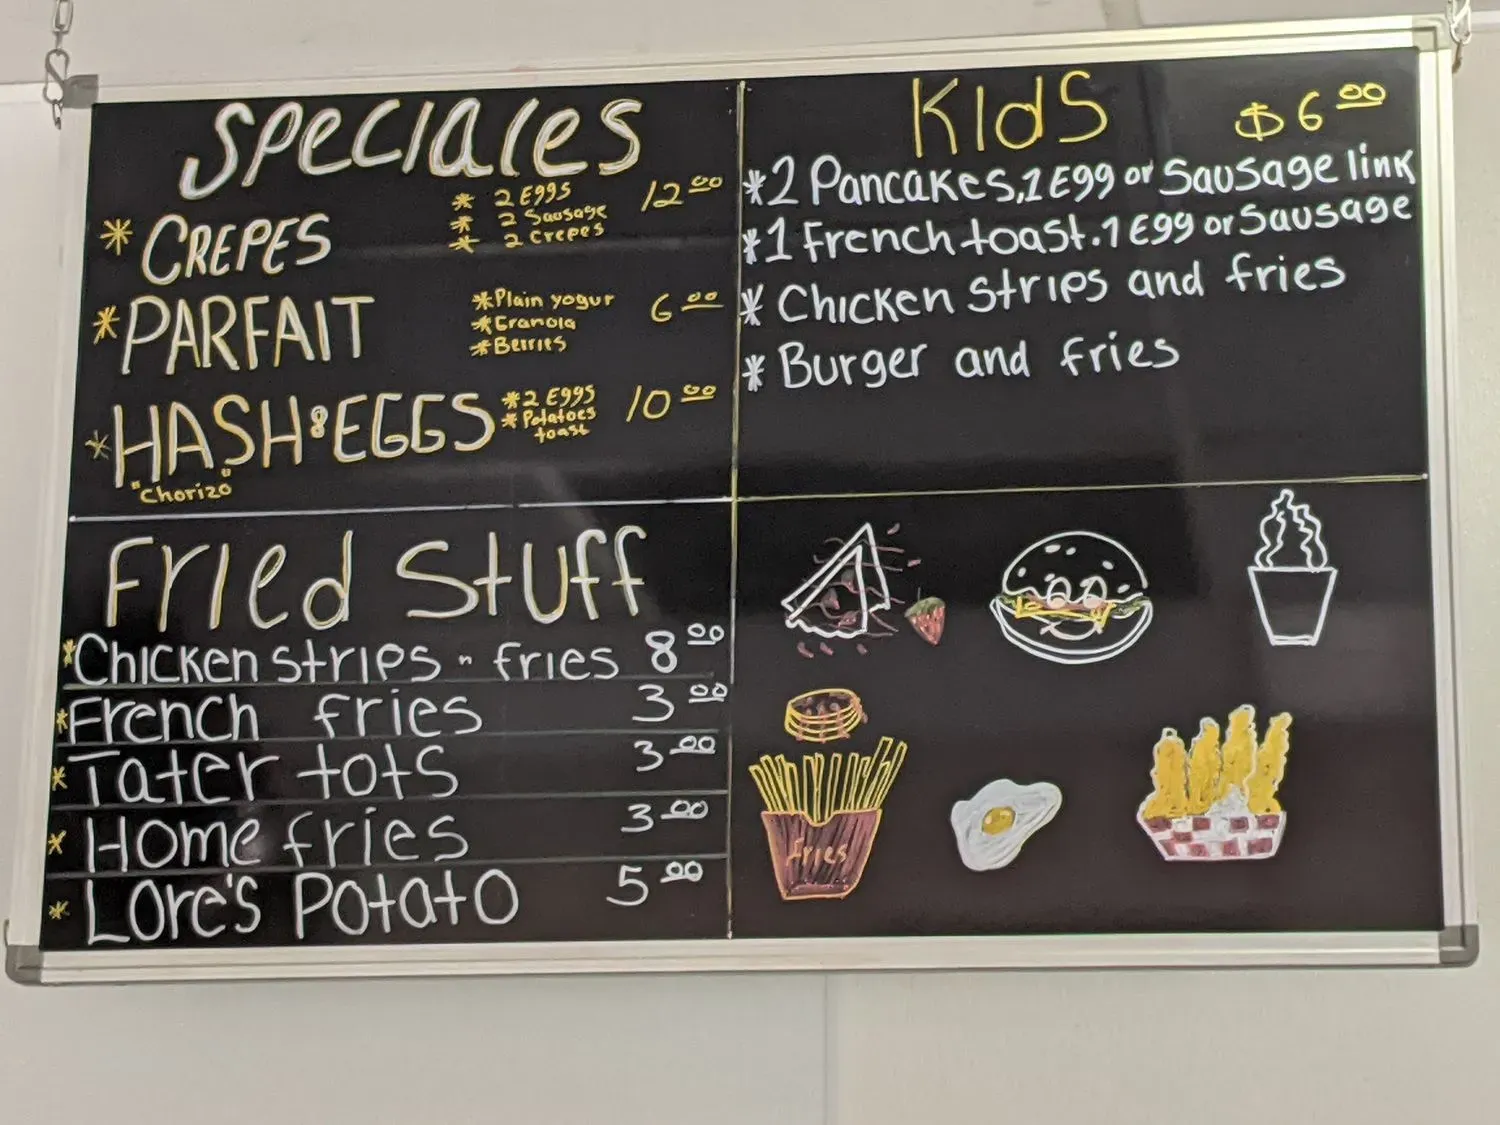 Speciales
* CREPES
* 2 Eggs 12.00
* 2 Sausage
* 2 Crepes
* PARFAIT
* Plain yogur 6.00
* Granola
* Berries
* HASH & EGGS
"Chorizo"
* 2 Eggs 10.00
* Potatoes
toast
Kids $6.00
* 2 Pancakes, 1 Egg or Sausage link
* 1 French toast. 1 Egg or Sausage
* Chicken strips and fries
* Burger and fries
Fried Stuff
* Chicken strips n fries 8.00
* French fries 3.00
* Tater tots 3.00
* Home fries 3.00
* Lore's Potato 5.00
fries